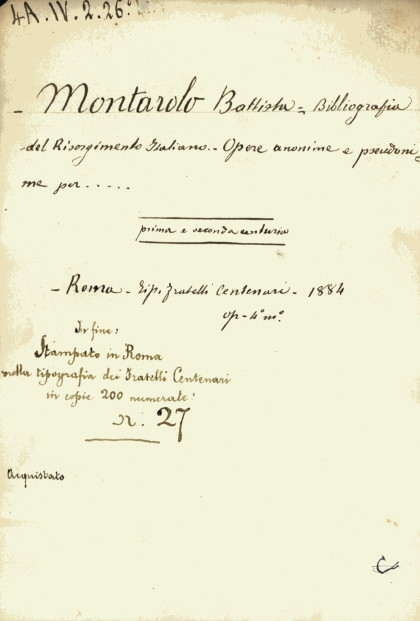 4A.IV.2.26°
- Montarolo Battista = Bibliografia
del Risorgimento Italiano.- Opere anonime e pseudoni-
me per .....
prima e seconda centuria
- Roma - Tip. Fratelli Centenari - 1884
op- 4° m°.
In fine:
Stampato in Roma
nella tipografia dei Fratelli Centenari
in copie 200 numerate:
N. 27
Acquistato
C